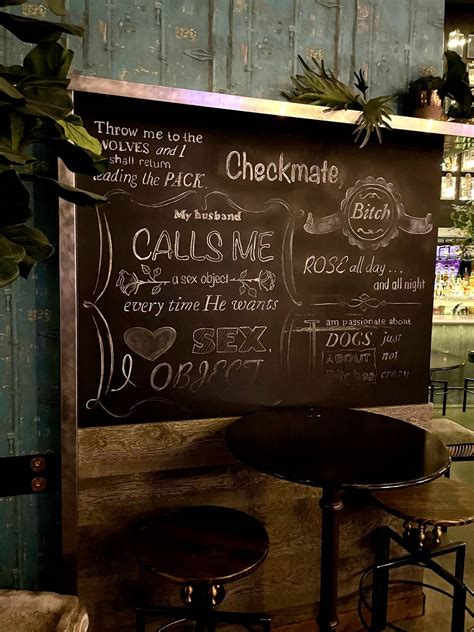 Throw me to the
WOLVES and I
shall return
leading the PACK.
Checkmate,
Bitch
My husband
CALLS ME
a sex object
every time He wants
SEX,
I OBJECT
ROSE all day...
and all night
I am passionate about
DOGS just
ABOUT not
crazy